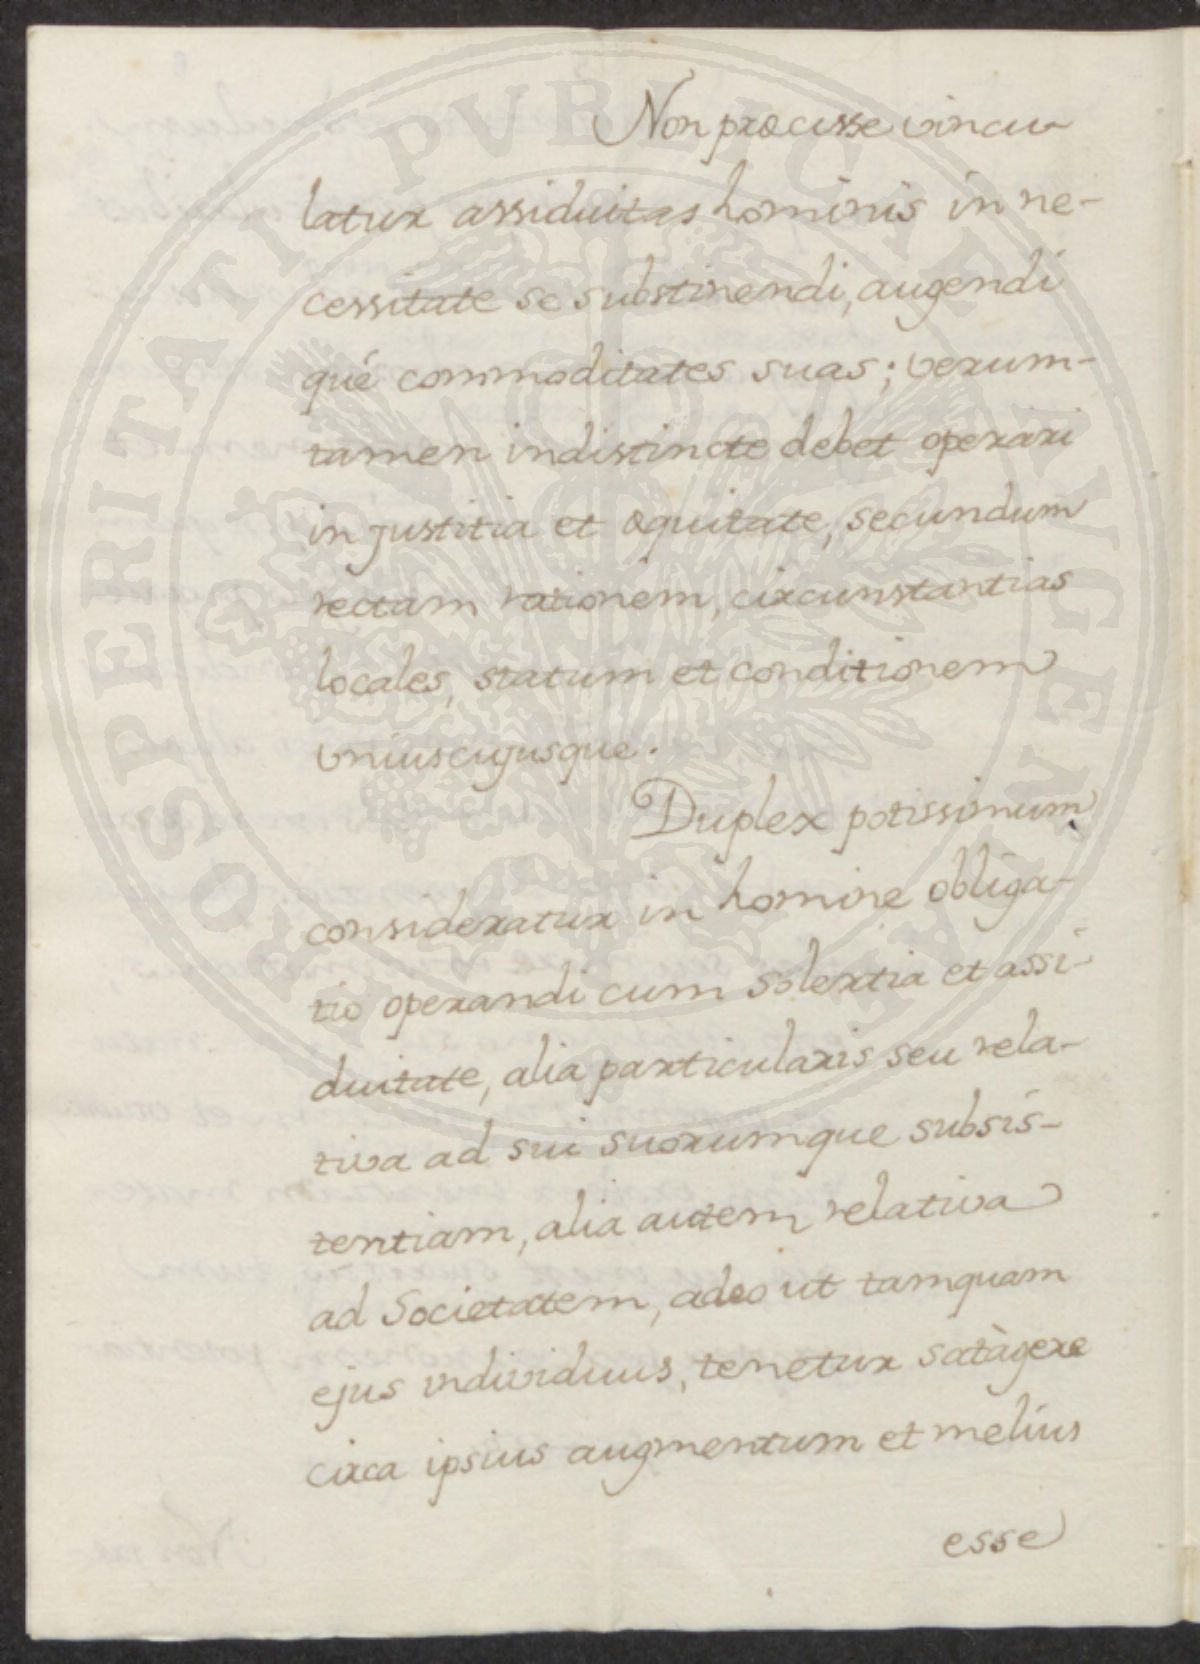 Non præcisse vincu-
latur assiduitas hominis in ne-
cessitate se substinendi, augendi
qué commoditates suas; verum-
tamen indistincte debet operari
in justitia et æquitate, secundum
rectam rationem, circunstantias
locales, statum et conditionem
uniuscujusque.
Duplex potissimum
consideratur in homine obliga-
tio operandi cum solertia et assi-
duitate, alia particularis seu rela-
tiva ad sui suorumque subsis-
tentiam, alia autem relativa
ad Societatem, adeo ut tamquam
ejus individuus, tenetur satàgere
circa ipsius augmentum et melius
esse
PROSPERITATI PVBLICAE AVGENDAE